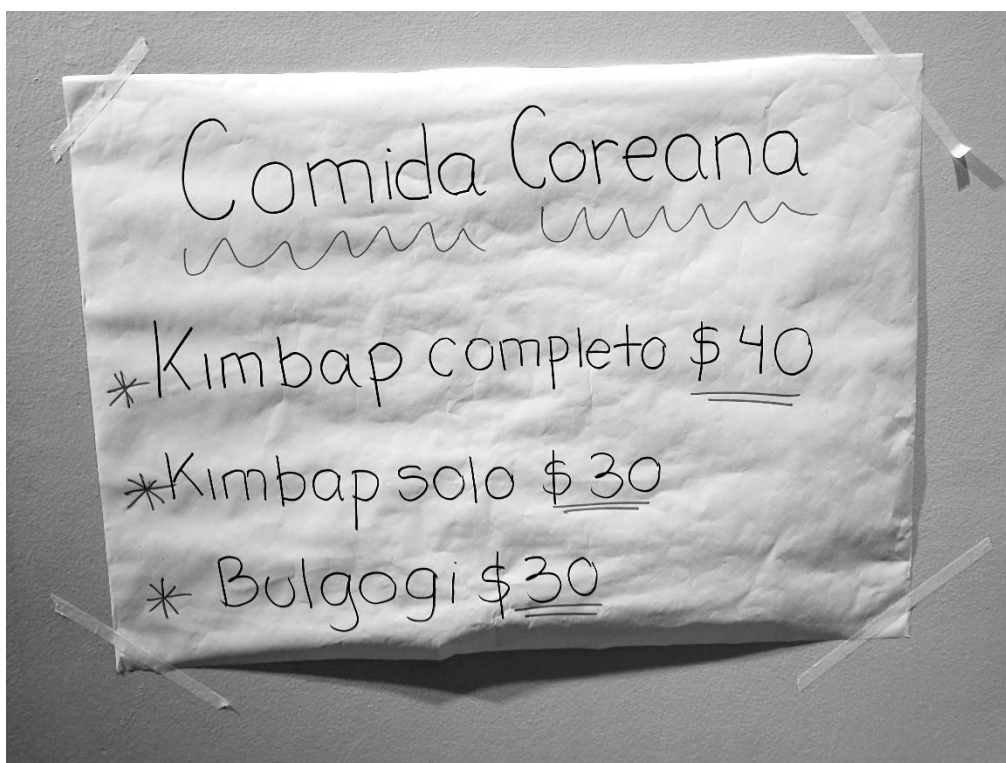 Comida Coreana
* Kimbap completo $40
* Kimbap solo $30
* Bulgogi $30